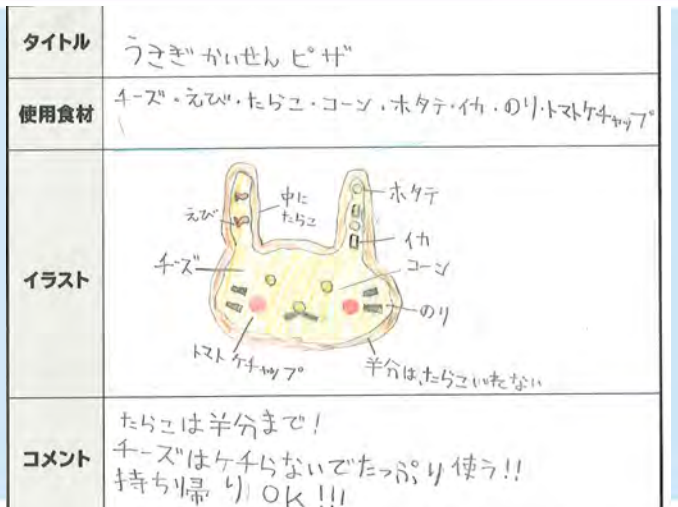 タイトル
うさぎかいせんピザ
使用食材
チーズ・えび・たらこ・コーン・ホタテ・イカ・のり・トマトケチャップ
イラスト
ホタテ
中に
たらこ
えび
イカ
チーズ
コーン
のり
トマトケチャップ
半分は、たらこいれない
コメント
たらこは半分まで!
チーズはケチらないでたっぷり使う!!
持ち帰りOK!!!